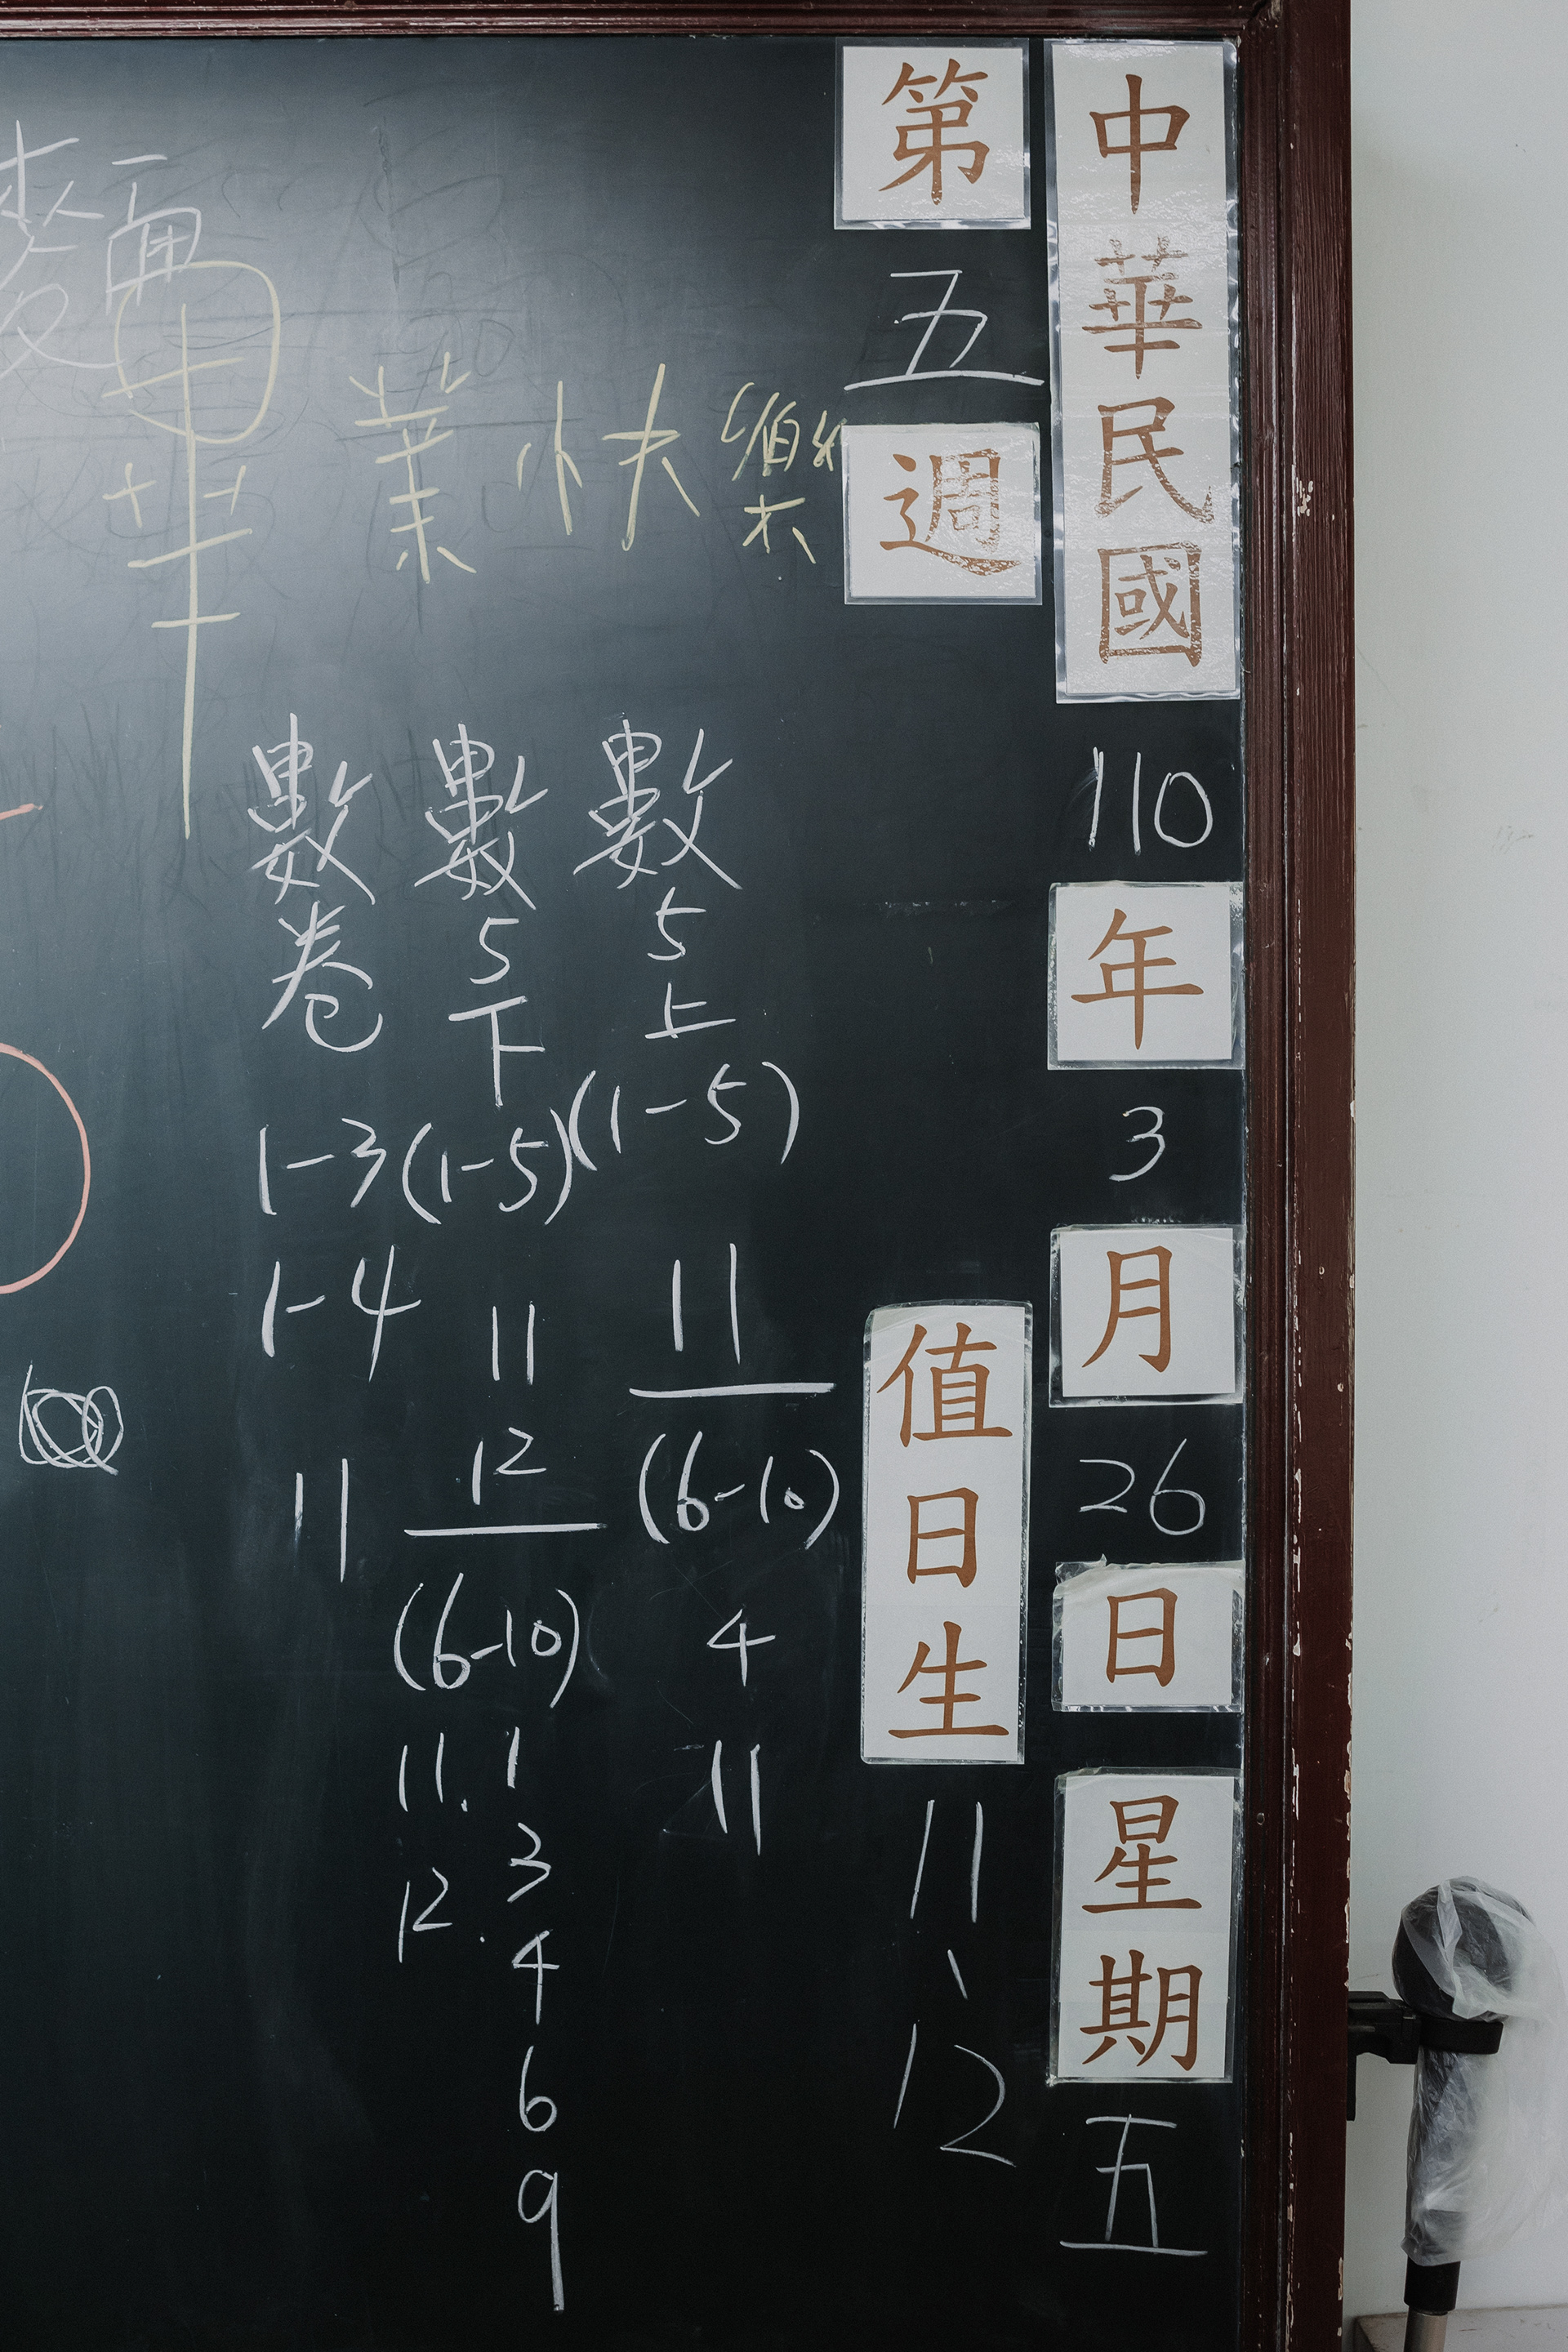 中華民國110年3月26日星期五
第五週
值日生11、12
畢業快樂
數5上(1-5)
11
(6-10)
4
11
數5下(1-5)
11
12
(6-10)
11.
12.
1
3
4
6
9
數卷
1-3
1-4
11
麵